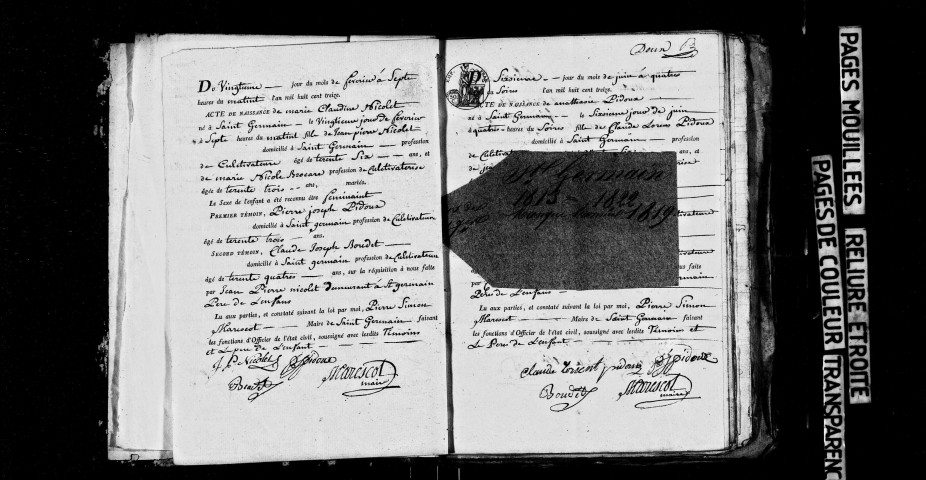 Du Vingtieme — jour du mois de fevrier à Sept
heures du matint l'an mil huit cent treize.
ACTE DE NAISSANCE de marie Claudine Nicolet
né à Saint Germain — le Vingtieme jour de fevrier
à Sept heures du matint fille de Jean pierre Nicolet
domicilié à Saint Germain — profession
de Cultivateure âgé de terente Six — ans, et
de marie Nicole profession de Cultivaterise
âgée de terente trois — ans, mariés.
Le Sexe de l'enfant a été reconnu être feminaint
PREMIER TÉMOIN, Pierre joseph Pidoux
domicilié à Saint germain profession de Culetivateur
âgé de terente trois — ans.
SECOND TÉMOIN, Claude Joseph Boudet —
domicilié à Saint germain profession de Culetivateur
âgé de terente quatres — ans, sur la réquisition à nous faite
par Jean Pierre nicolet demeurant à St germain
Père de L'enfans
Lu aux parties, et constaté suivant la loi par moi, Pierre Simon
Marescot — Maire de Saint Germain — faisant
les fonctions d'Officier de l'état civil, soussigné avec lesdits Témoins
et Le pere de L'enfant
J P Nicolet PJ Pidoux
Boudet Marescot
maire
Deux
Du Sixieme — jour du mois de juin à quatres
du Soires l'an mil huit cent treize.
ACTE DE NAISSANCE de anathasie Pidoux
né à Saint Germain — le Sixieme jour de juin
à quatres heures du Soires fille de Claude Pidoux
domicilié à Saint Germain — profession
de ans, et
St Germain
1813 - 1822
manque 1819
faite
Père de L'enfans
Lu aux parties, et constaté suivant la loi par moi, Pierre Simon
Marescot — Maire de Saint Germain faisant
les fonctions d'Officier de l'état civil, soussigné avec lesdits Témoins et
Le Pere de L'enfant
Claude pidoux PJ Pidoux
Boudet Marescot
maire
PAGES MOUILLEES RELIURE ETROITE
PAGES DE COULEUR TRANSPARENC